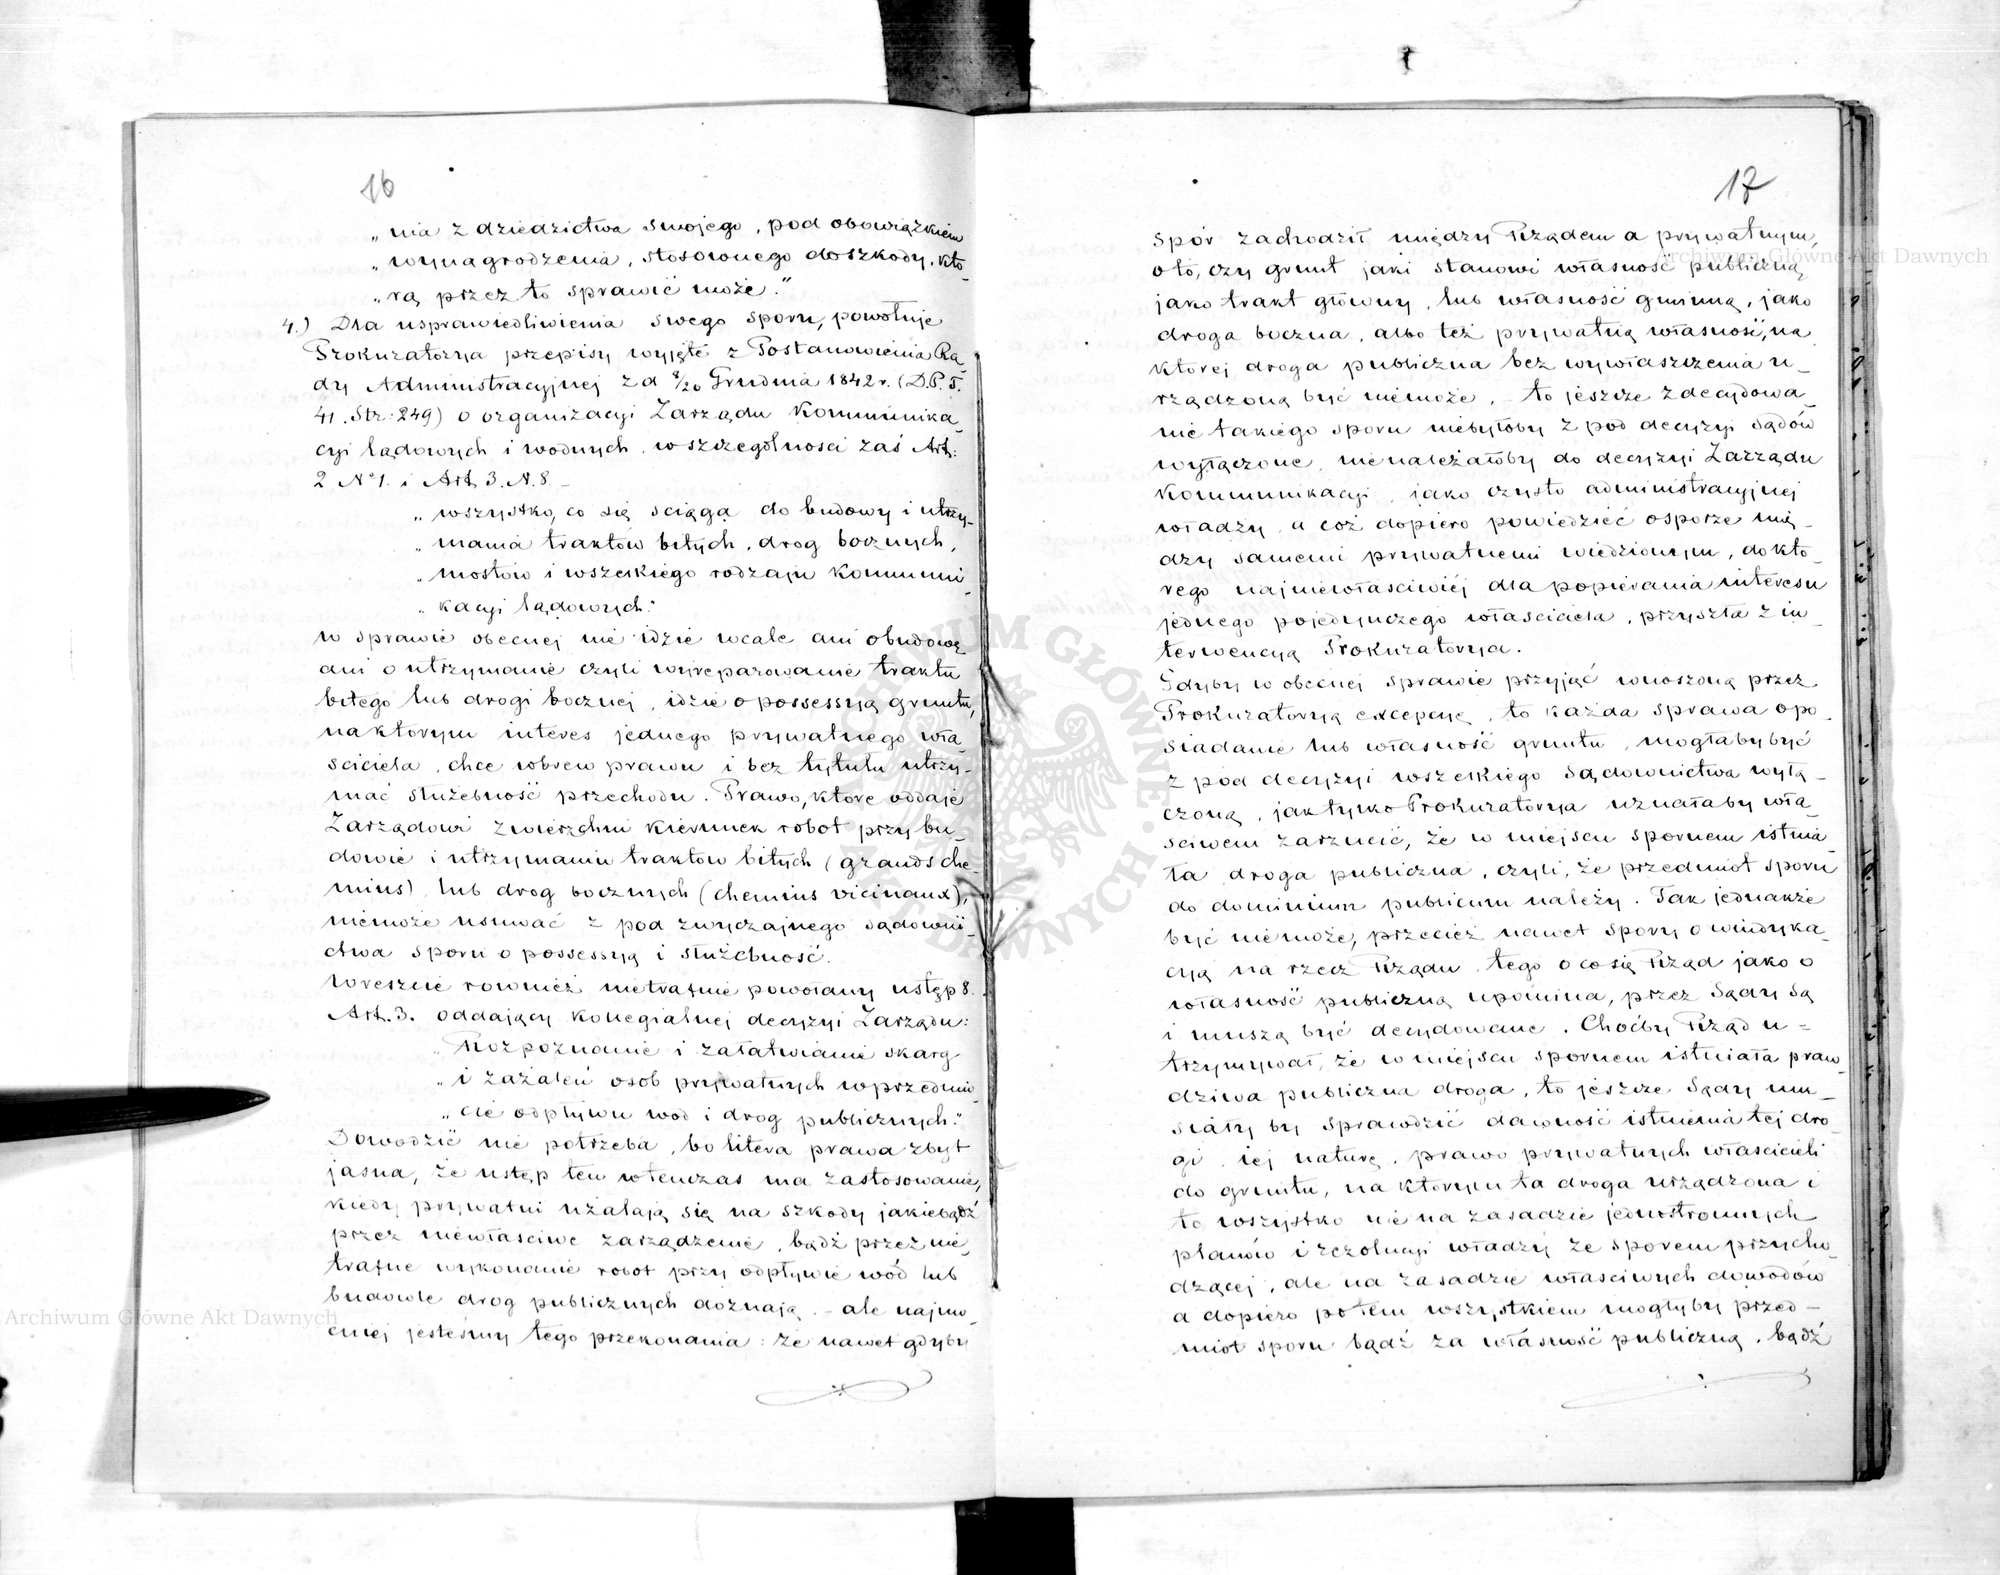 16
„nia z dziedzictwa swojego, pod obowiązkiem
„wynagrodzenia, stosownego do szkody, któ_
„rą przez to sprawić może."
4.) Dla usprawiedliwienia swego sporu, powołuje
Prokuratorya przepisy wyjęte z Postanowienia Ra_
dy Administracyjnej z d 8/20 Grudnia 1842 r. (D.P. T.
41. Str: 249) o organizacyi Zarządu Kommunika_
cyi lądowych i wodnych, w szczególnosci zaś Art:
2 N° 1. i Art. 3. N. 8. _
„wszystko, co się sciąga do budowy i utrzy_
„mania traktów bitych, drog bocznych,
„mostów i wszelkiego rodzaju kommuni_
„kacyi lądowych."
w sprawie obecnej nie idzie wcale ani o budowę
ani o utrzymanie czyli wyreparowanie traktu
bitego lub drogi bocznej, idzie o possessyą gruntu,
na ktorym interes jednego prywatnego wła_
sciciela, chce wbrew prawu i bez tytułu utrzy_
mać służebność przechodu. Prawo, ktore oddaje
Zarządowi zwierzchni kierunek robot przy bu_
dowie i utrzymaniu traktow bitych (grands che_
mins) lub drog bocznych (chemins vicinaux),
niemoże usuwać z pod zwyczajnego sądowni_
ctwa sporu o possessyą i służebność.
Wreszcie rownież nietrafnie powołany ustęp 8.
Art. 3. oddający kollegialnej decyzyi Zarządu:
„Rozpoznanie i załatwianie skarg
„i zażaleń osób prywatnych w przedmio_
„cie odpływu wod i drog publicznych."
Dowodzić nie potrzeba, bo litera prawa zbyt
jasna, że ustęp ten wtenczas ma zastosowanie,
kiedy prywatni użalają się na szkody jakiebądź
przez niewłaściwe zarządzenie, bądź przez nie_
trafne wykonanie robot przy odpływie wód lub
budowle drog publicznych doznają, – ale najmo_
cniej jesteśmy tego przekonania: że nawet gdyby
17
spór zachodził między Rządem a prywatnym,
o to, czy grunt jaki stanowi własność publiczną
jako trakt główny, lub własność gminną, jako
droga boczna, albo też prywatną własność, na
ktorej droga publiczna bez wywłaszczenia u_
rządzoną być niemoże, – to jeszcze zdecydowa_
nie takiego sporu niebyłoby z pod decyzyi Sądów
wyłączone, nienależałoby do decyzyi Zarządu
Kommunikacyi, jako czysto administracyjnej
władzy, a coż dopiero powiedzieć o sporze mię_
dzy samemi prywatnemi wiedzionym, do któ_
rego najniewłaściwiéj dla popiérania interesu
jednego pojedynczego właściciela, przyszła z in_
terwencyą Prokuratorya.
Gdyby w obecnej sprawie przyjąć wnoszoną przez
Prokuratoryą excepcyę, to każda sprawa o po_
siadanie lub własność gruntu, mogłaby być
z pod decyzyi wszelkiego sądownictwa wyłą_
czoną, jak tylko Prokuratorya uznałaby wła_
sciwem zarzucić, że w miejscu spornem istnia_
ła droga publiczna, czyli, że przedmiot sporu
do dominium publicum należy. Tak jednakże
być niemoże, przecież nawet spory o windyka_
cyą na rzecz Rządu, tego o co się Rząd jako o
własność publiczną upomina, przez Sądy są
i muszą być decydowane. Choćby Rząd u=
trzymywał, że w miejscu spornem istniała praw_
dziwa publiczna droga, to jeszcze Sądy mu_
siały by sprawdzić dawność istnienia tej dro_
gi, iej naturę, prawo prywatnych właścicieli
do gruntu, na ktorym ta droga urządzona i
to wszystko nie na zasadzie jednostronnych
planów i rezolucyi władzy ze sporem przycho_
dzącej, ale na zasadzie właściwych dowodów
a dopiero potem wszystkiem mogłyby przed_
miot sporu bądź za własność publiczną, bądź
Archiwum Główne Akt Dawnych
Archiwum Główne Akt Dawnych
ARCHIWUM GŁÓWNE AKT DAWNYCH